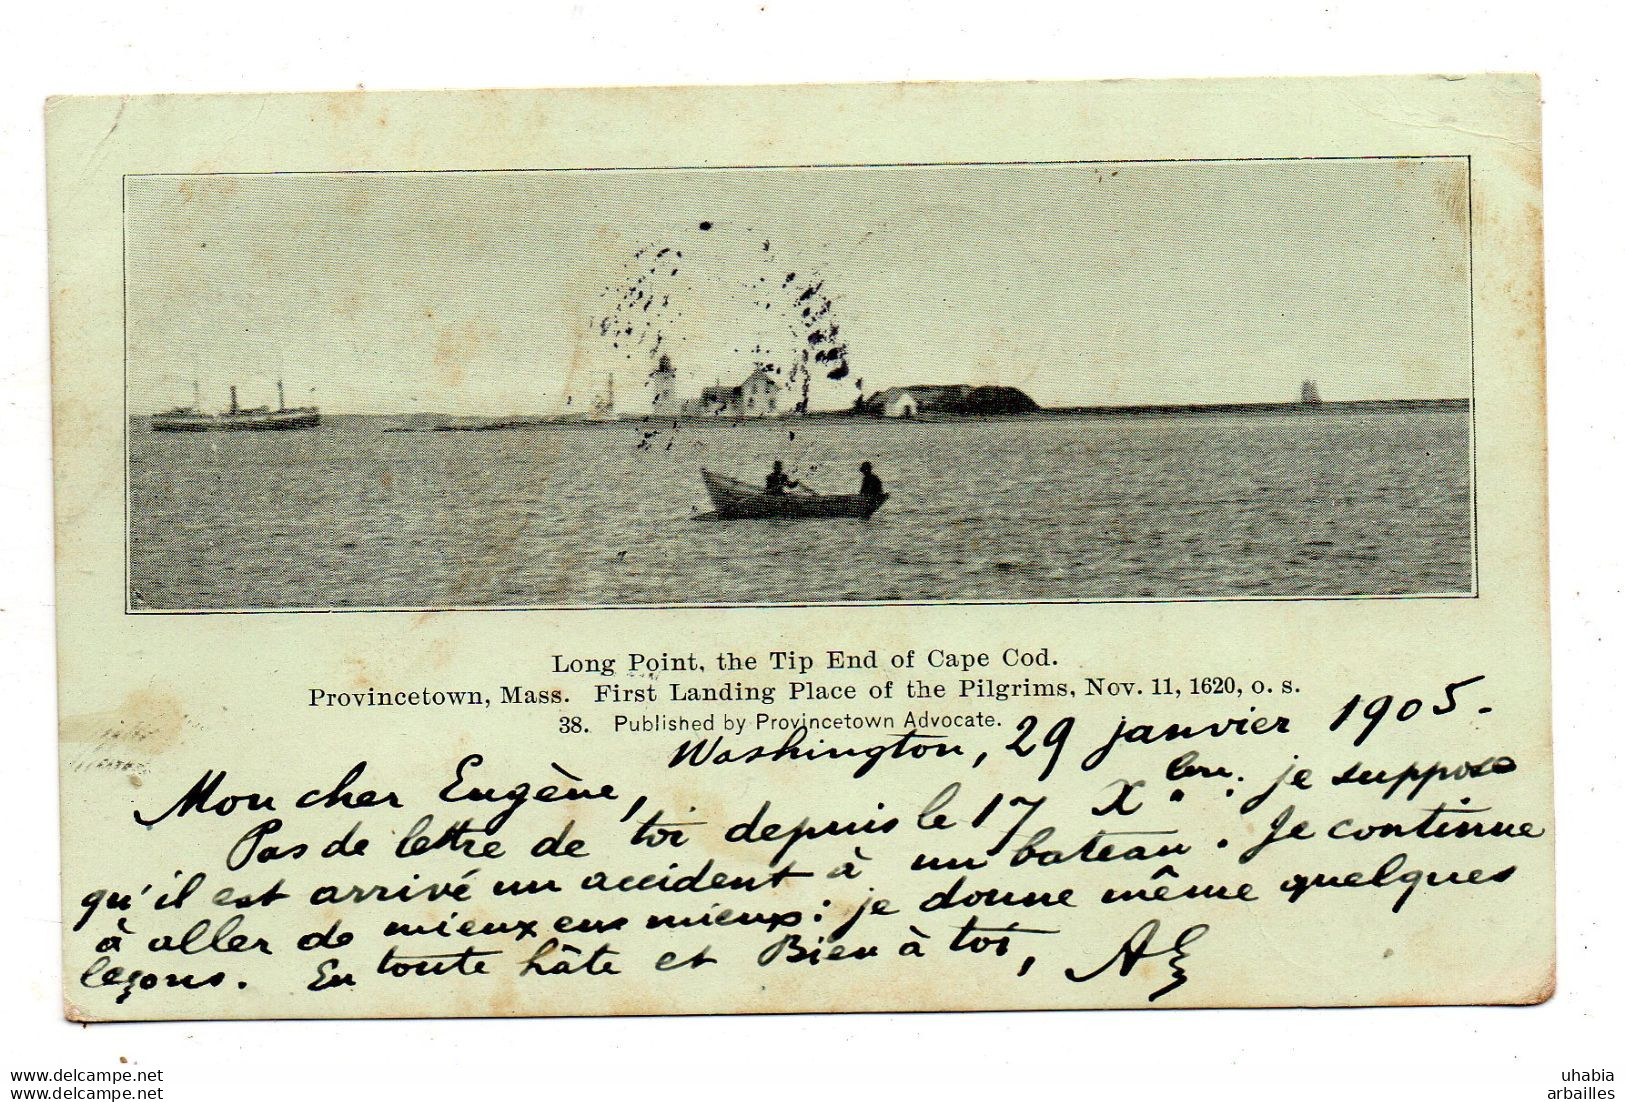 Long Point, the Tip End of Cape Cod.
Provincetown, Mass. First Landing Place of the Pilgrims, Nov. 11, 1620, o. s.
38. Published by Provincetown Advocate.
Washington, 29 janvier 1905.
Mon cher Eugène,
Pas de lettre de toi depuis le 17 Xbre. je suppose
qu'il est arrivé un accident à un bateau. Je continue
à aller de mieux en mieux: je donne même quelques
leçons. En toute hâte et Bien à toi,
www.delcampe.net
www.delcampe.net
uhabia
arbailles